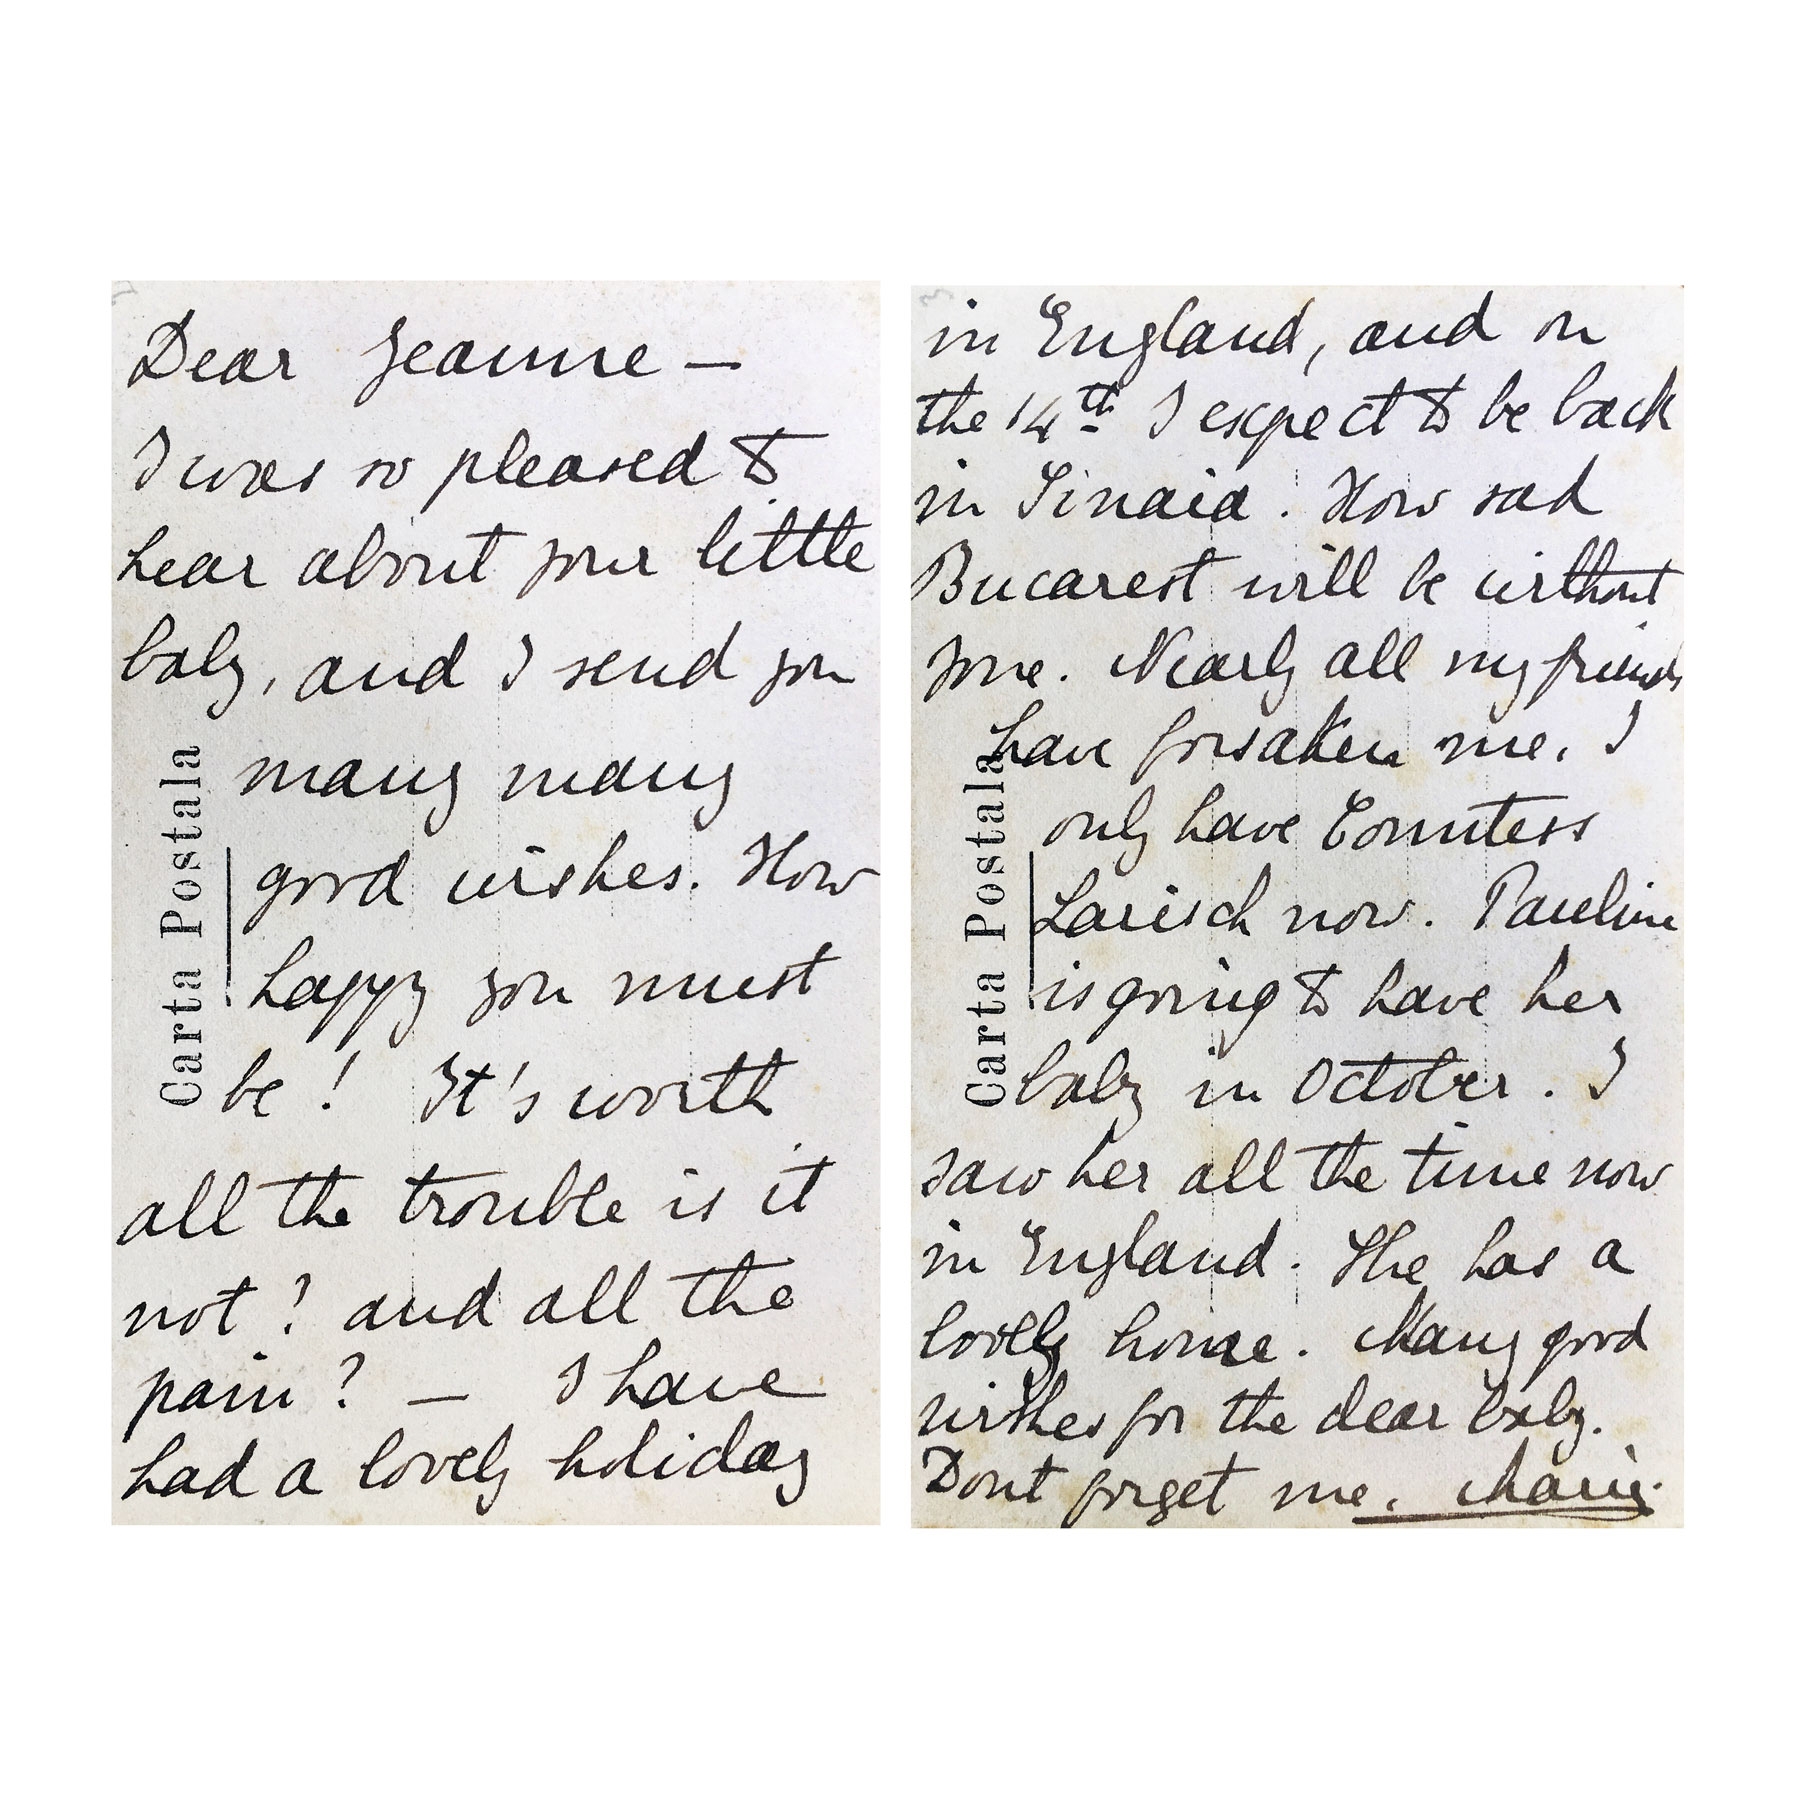 Dear Jeanne —
I was so pleased to
hear about your little
baby, and I send you
many many
good wishes. How
happy you must
be! It's worth
all the trouble is it
not? and all the
pain? — I have
had a lovely holiday
Carta Postala
in England, and on
the 14th I expect to be back
in Sinaia. How sad
Bucarest will be without
you. Nearly all my friends
have forsaken me. I
only have Countess
Larisch now. Pauline
is going to have her
baby in October. I
saw her all the time now
in England. She has a
lovely home. Many good
wishes for the dear baby.
Dont forget me. Marie.
Carta Postala